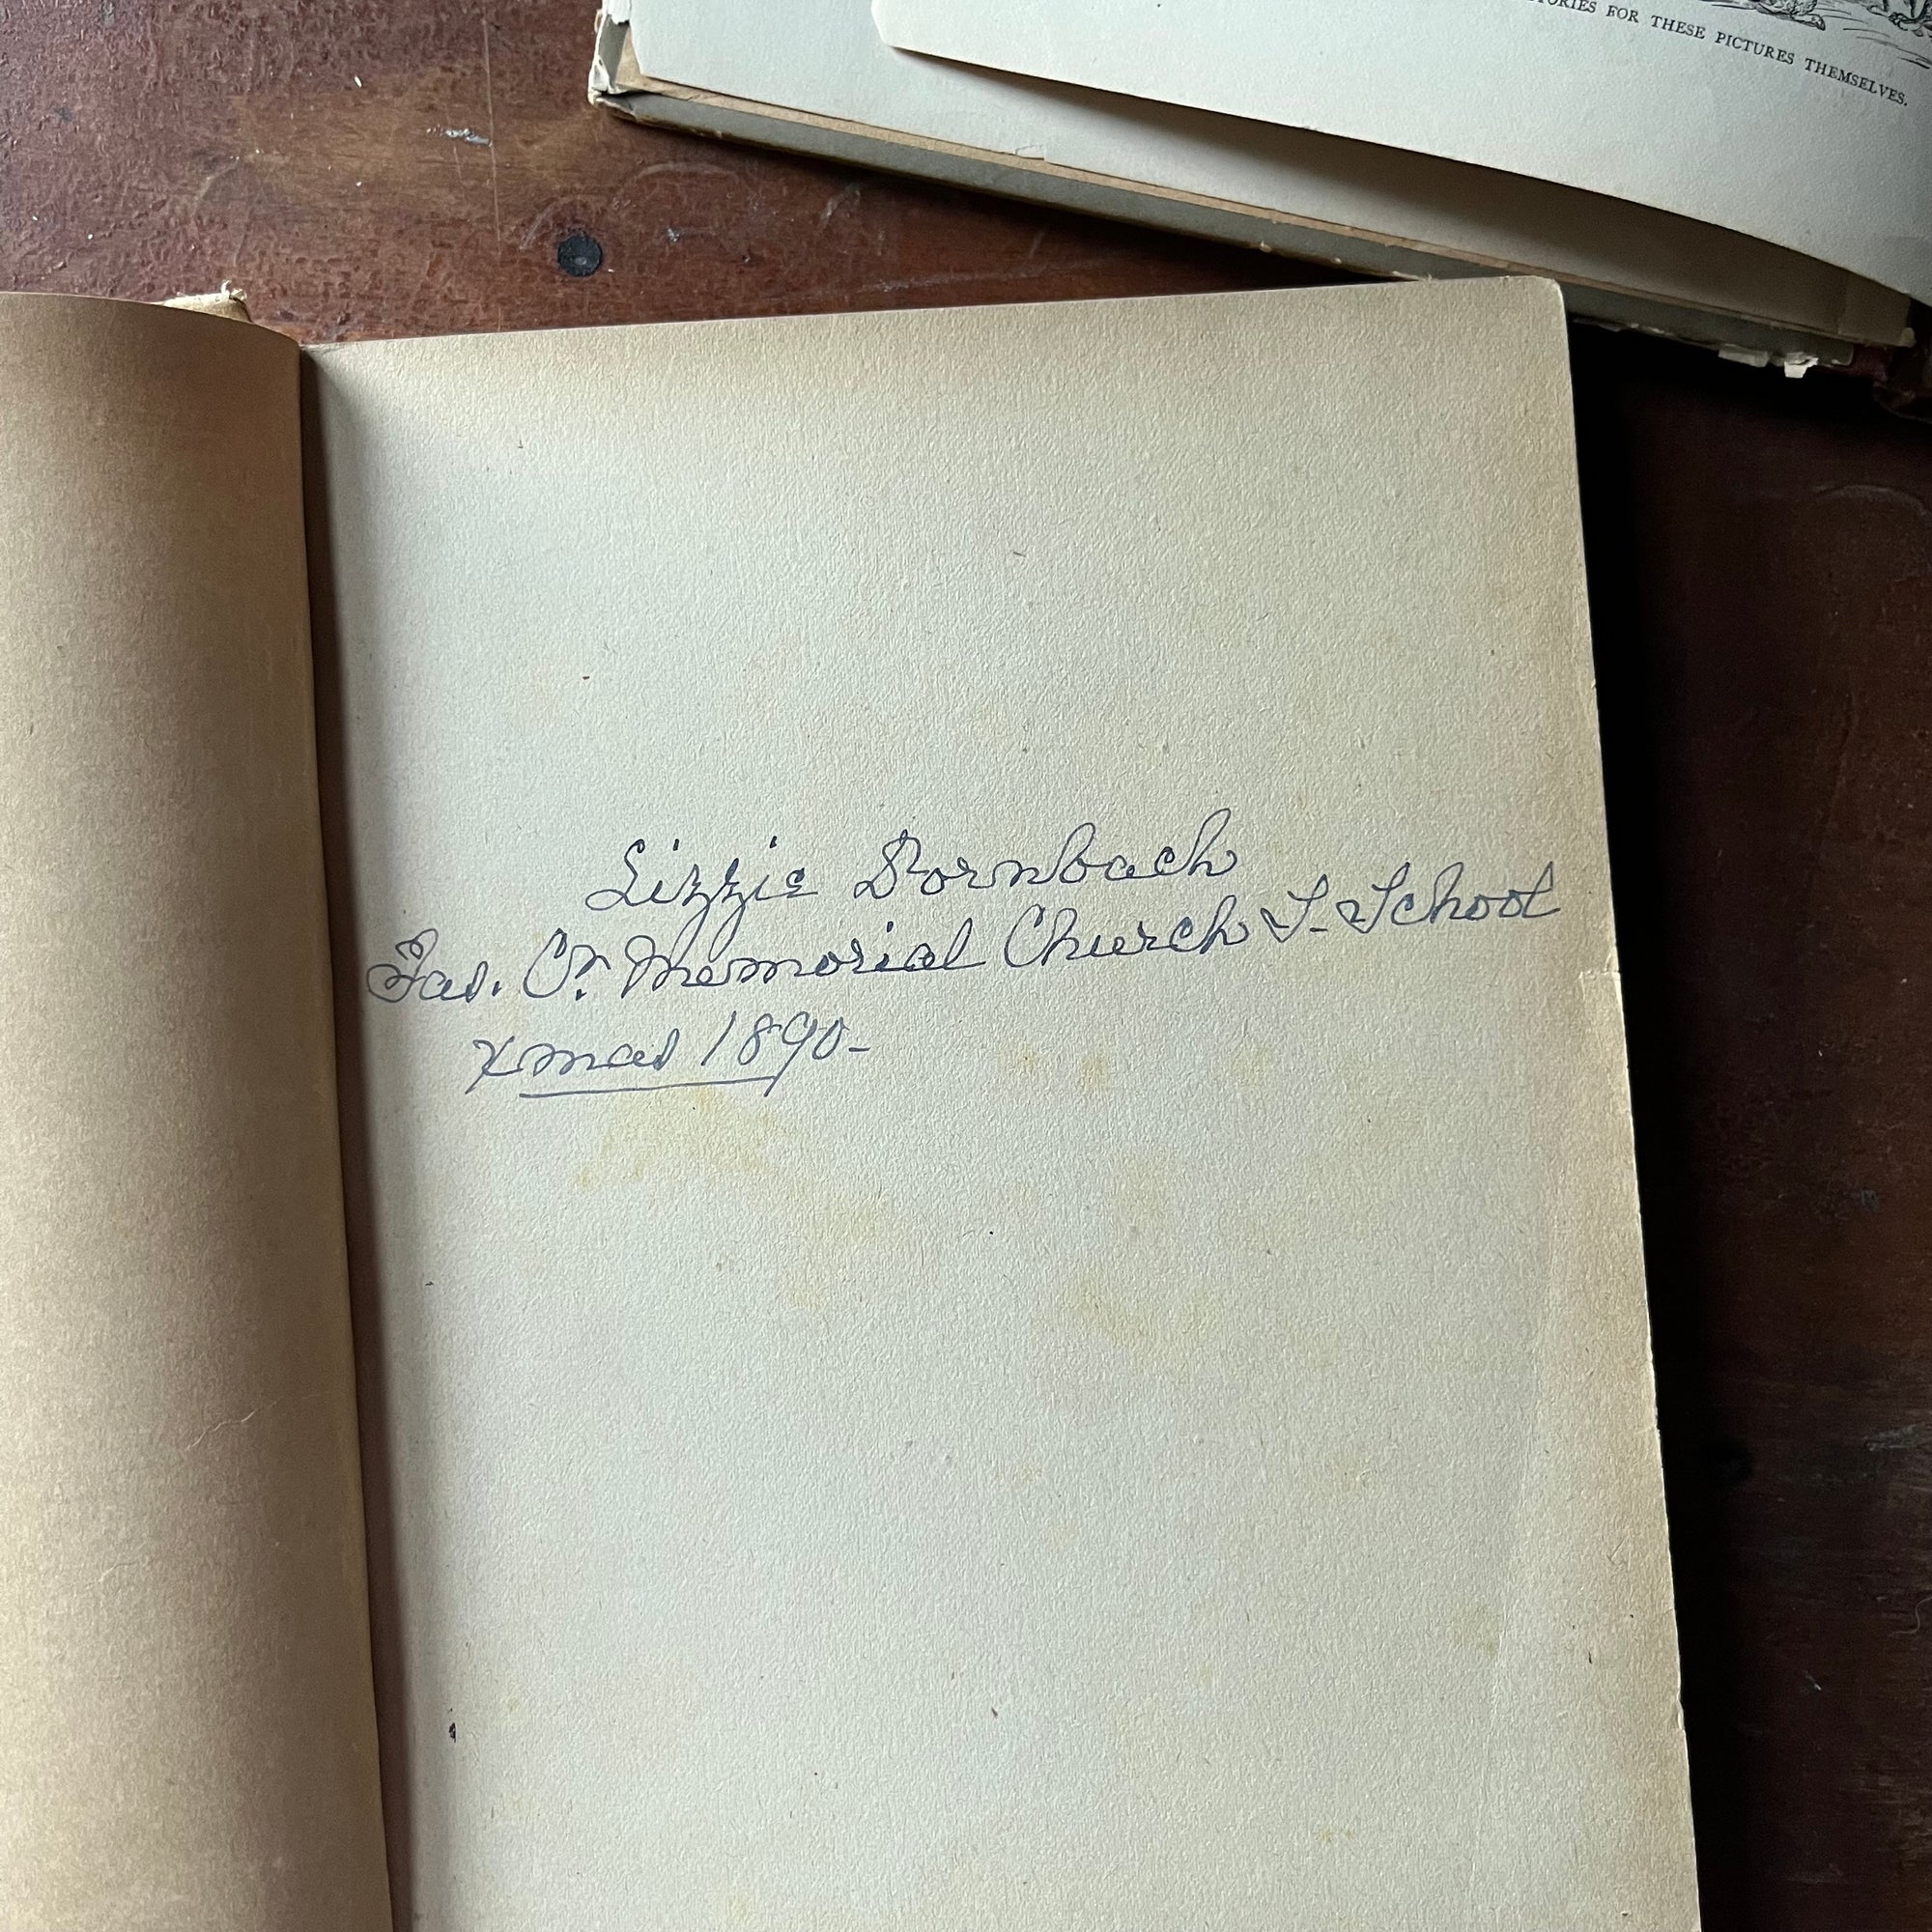 STORIES FOR THESE PICTURES THEMSELVES.
Lizzie Dornbach
Jas. Cr. Memorial Church S. School
Xmas 1890-